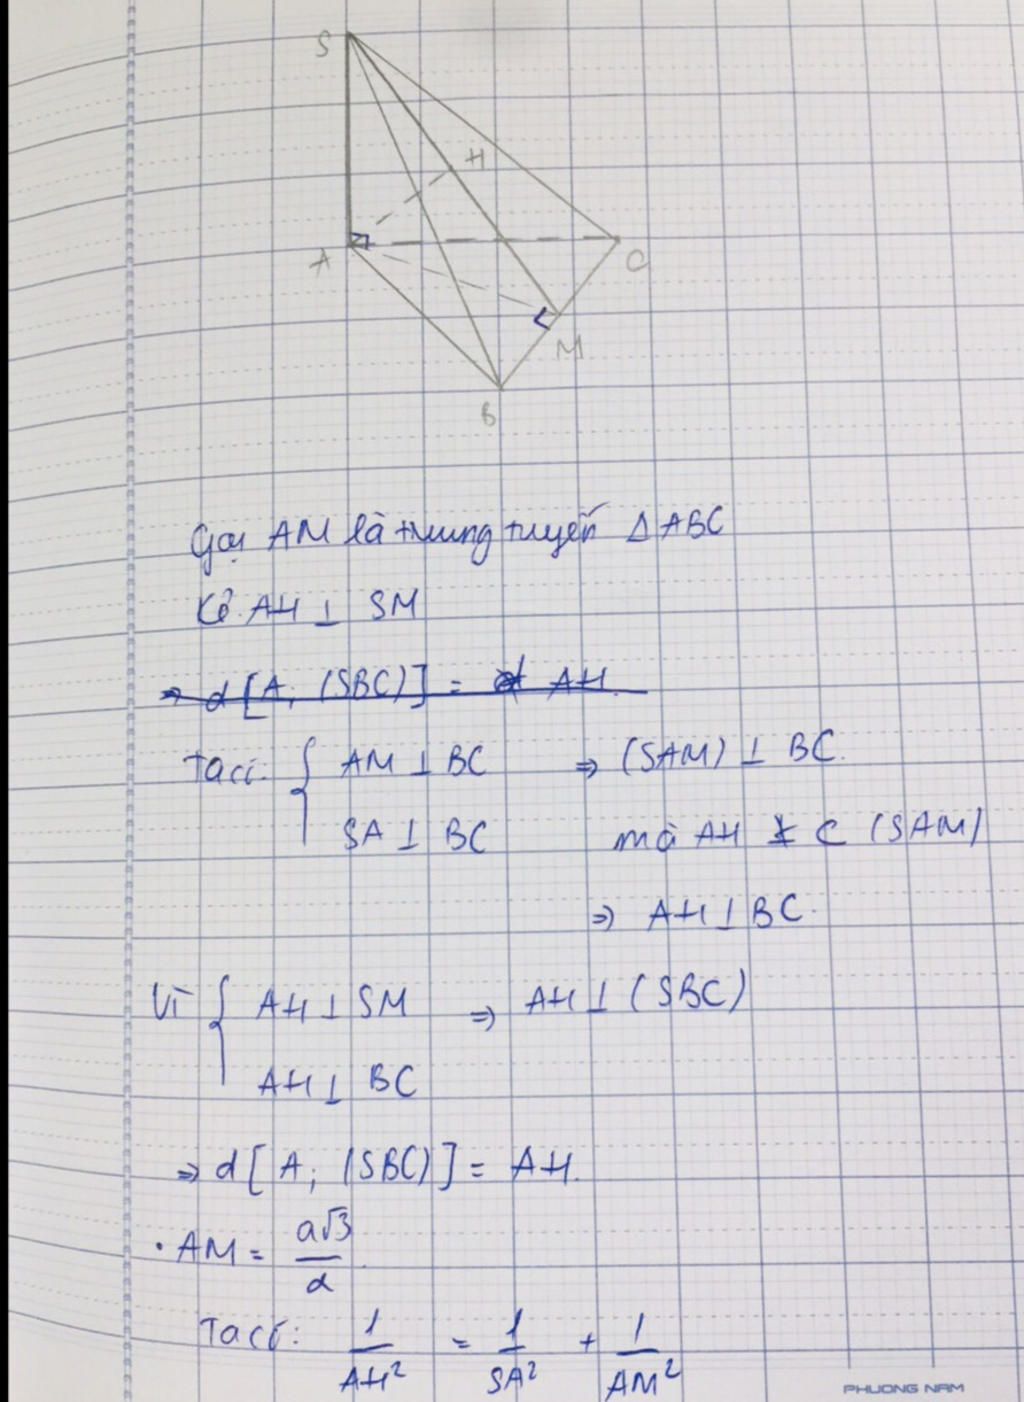 S
H
A
C
M
B
Gọi AM là trung tuyến Δ ABC
Kẻ AH ⊥ SM
⇒ d[A; (SBC)] = AH.
Ta có: { AM ⊥ BC ⇒ (SAM) ⊥ BC.
SA ⊥ BC mà AH ⊂ (SAM)
⇒ AH ⊥ BC.
Vì { AH ⊥ SM ⇒ AH ⊥ (SBC)
AH ⊥ BC
⇒ d[A; (SBC)] = AH.
• AM = a√3/2
Ta có: 1/AH² = 1/SA² + 1/AM²
PHUONG NAM